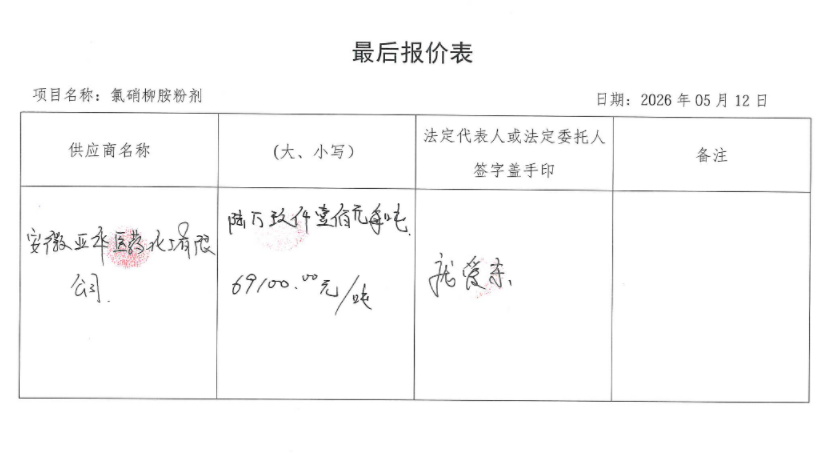 最后报价表
项目名称：氯硝柳胺粉剂
日期：2026 年 05 月 12 日
供应商名称
（大、小写）
法定代表人或法定委托人
签字盖手印
备注
安徽亚华医药化工有限
公司
陆万玖仟壹佰元每吨
69100.00元/吨
爱东